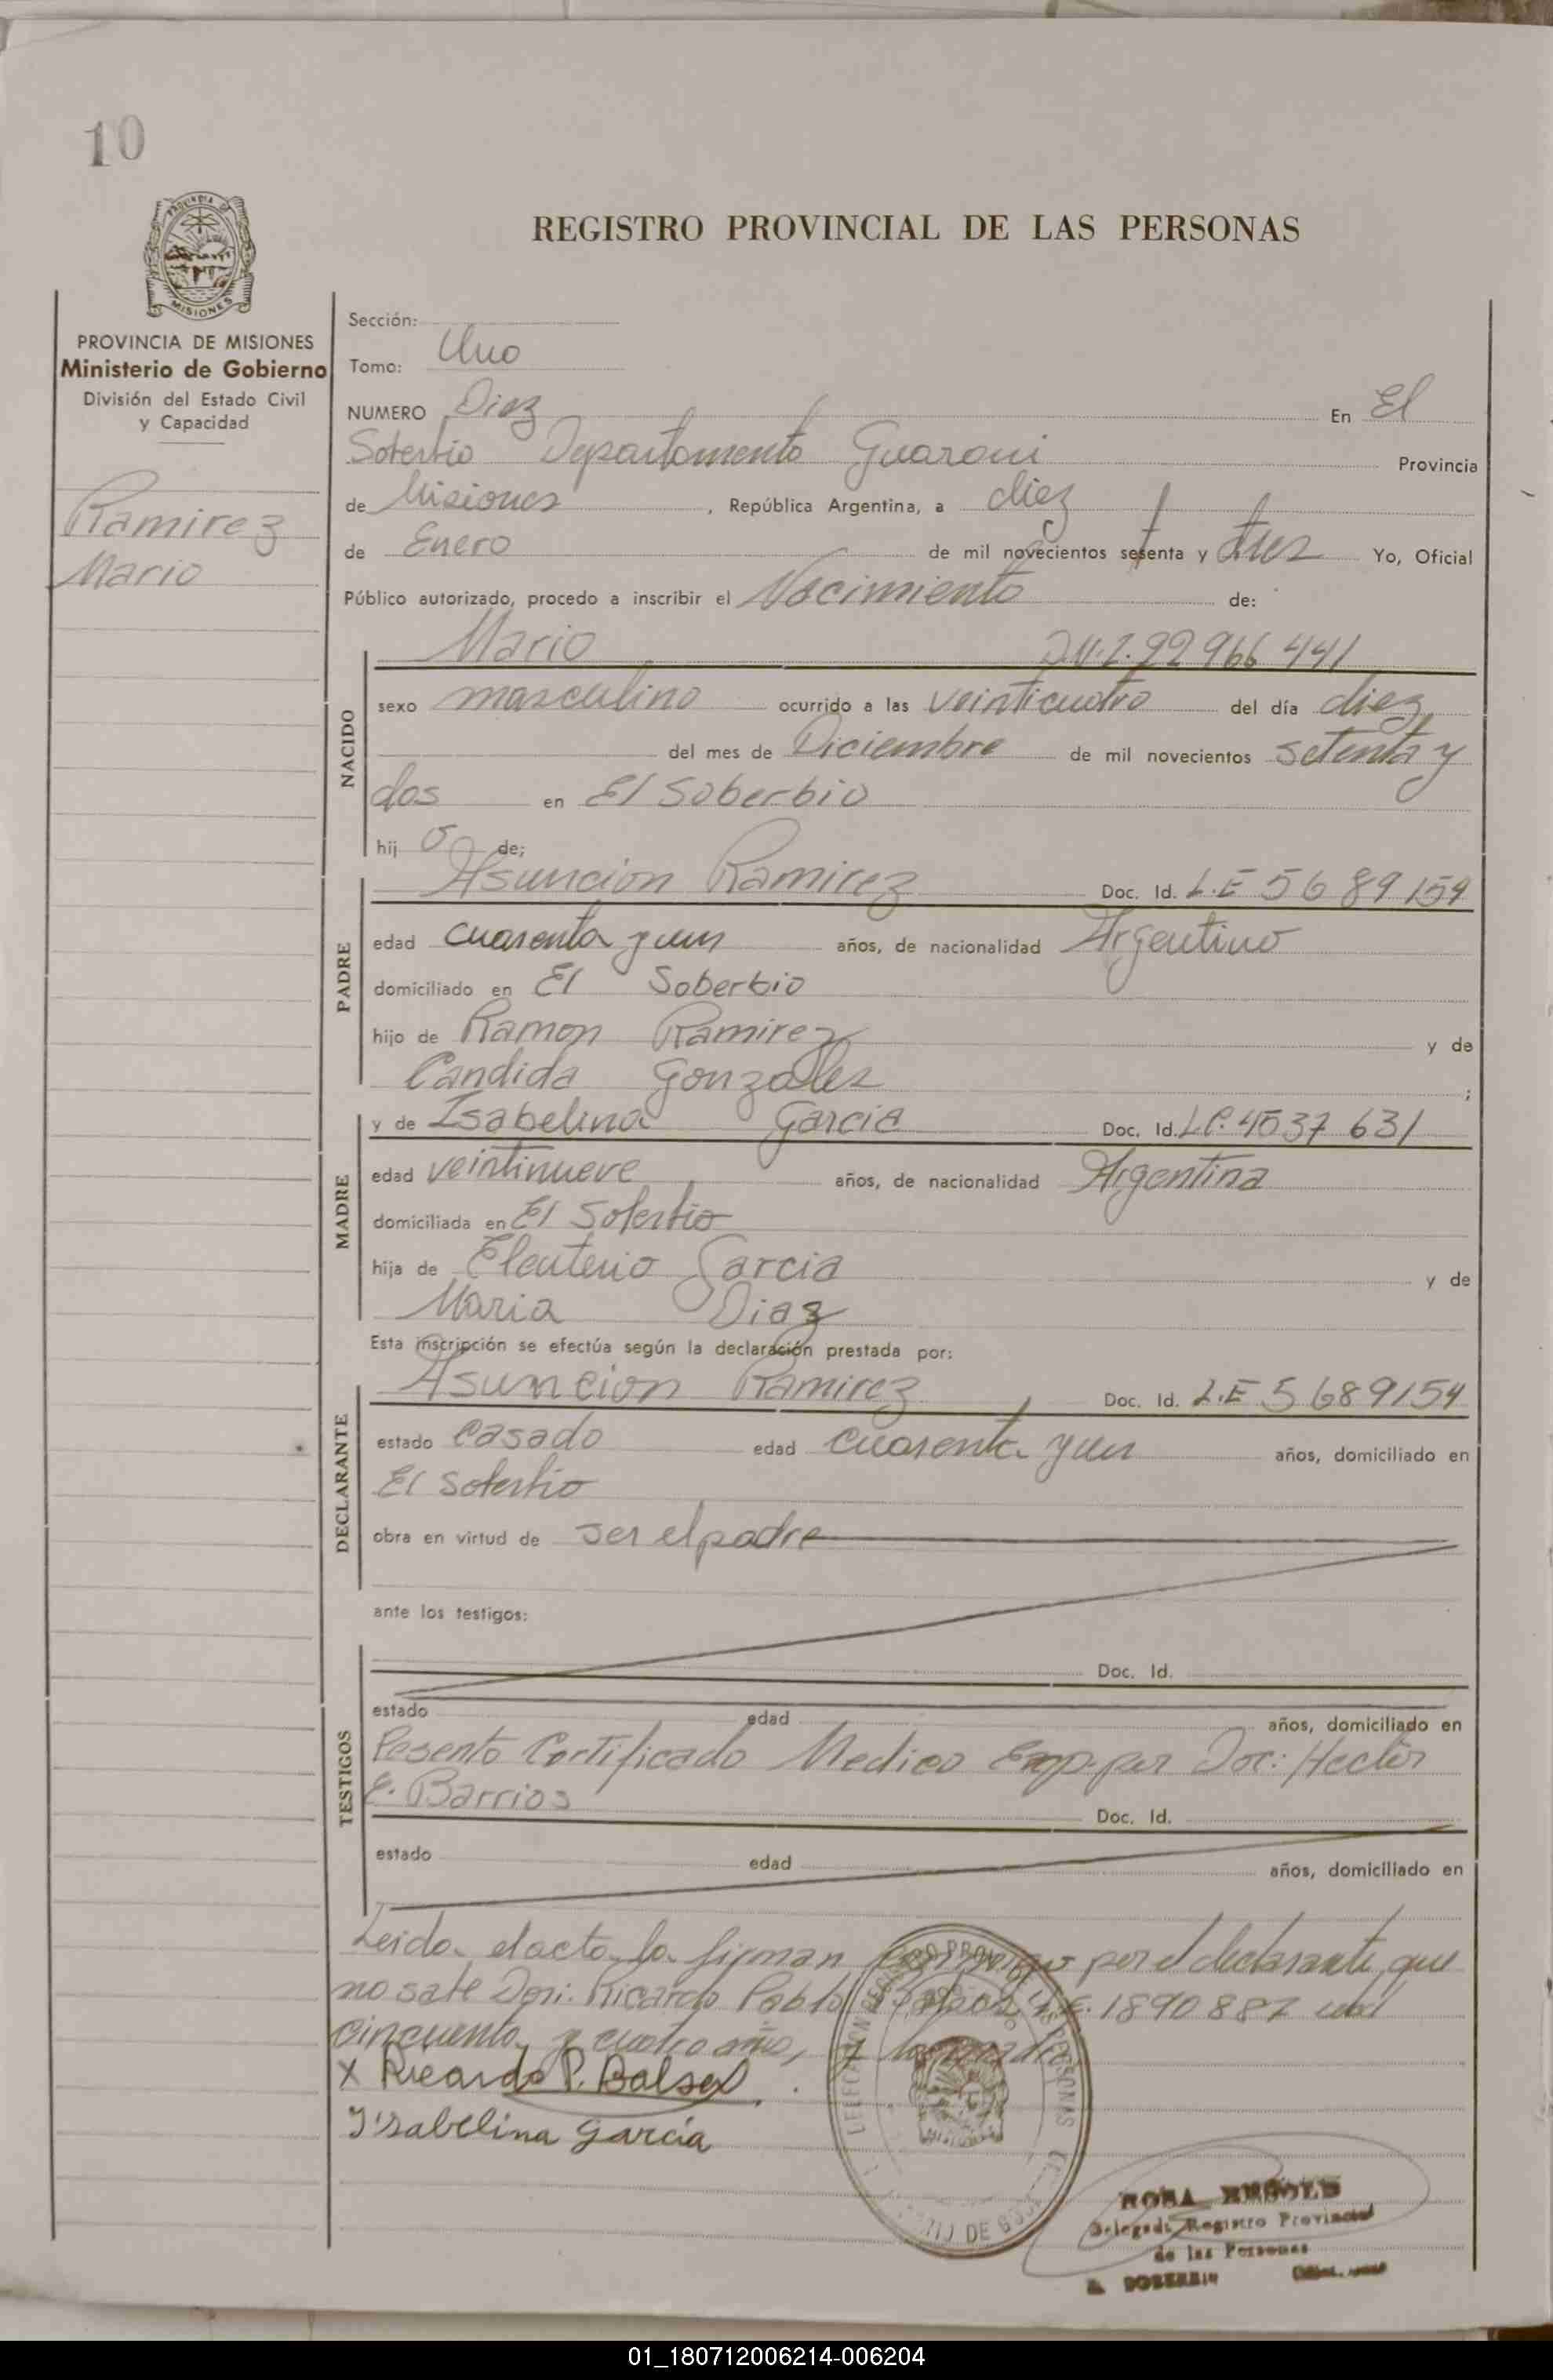 10
PROVINCIA DE MISIONES
Ministerio de Gobierno
División del Estado Civil
y Capacidad
Ramirez
Mario
REGISTRO PROVINCIAL DE LAS PERSONAS
Sección:
Tomo: Uno
NUMERO Diez En El
Soberbio Departamento Guarani Provincia
de Misiones, República Argentina, a diez
de Enero de mil novecientos setenta y tres Yo, Oficial
Público autorizado, procedo a inscribir el Nacimiento de:
Mario D.N.I. 22 966 441
NACIDO
sexo masculino ocurrido a las veinticuatro del día diez
del mes de Diciembre de mil novecientos setenta y
dos en El Soberbio
hij o de;
PADRE
Asuncion Ramirez Doc. Id. L.E 5689154
edad cuarenta y un años, de nacionalidad Argentino
domiciliado en El Soberbio
hijo de Ramon Ramirez y de
Candida Gonzales ;
MADRE
y de Isabelina Garcia Doc. Id. L.C. 4537 631
edad veintinueve años, de nacionalidad Argentina
domiciliada en El Soberbio
hija de Eleuterio Garcia y de
Maria Diaz
Esta inscripción se efectúa según la declaración prestada por:
DECLARANTE
Asuncion Ramirez Doc. Id. L.E 5689154
estado casado edad cuarenta y un años, domiciliado en
El Soberbio
obra en virtud de ser el padre
ante los testigos:
TESTIGOS
Doc. Id.
estado edad años, domiciliado en
Pesento Certificado Medico Exp. por Doc: Hector
E. Barrios Doc. Id.
estado edad años, domiciliado en
Leida el acta la firman por el declarante que
no sabe Don: Ricardo Pablo L.E. 1890887
cincuenta y cuatro años, y la madre
X Ricardo P. Balsa
Isabelina García
MISIONES
ROSA
Delegada Registro Provincial
de las Personas
EL SOBERBIO
01_180712006214-006204